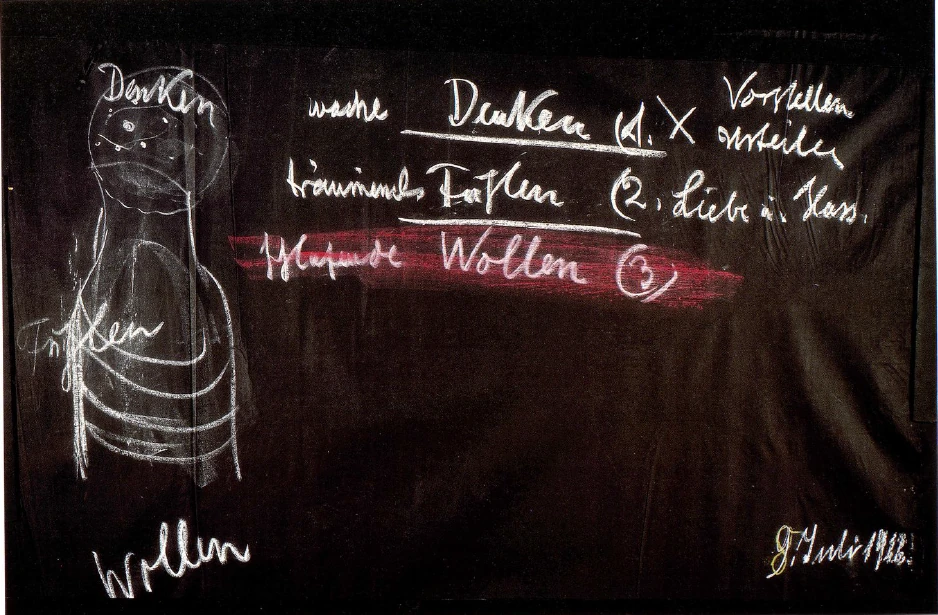 Denken
wache Denken (1. X Vorstellen
Urteilen
träumende Fühlen (2. Liebe u. Hass.
schlafende Wollen (3)
Fühlen
Wollen
9. Juli 1918.